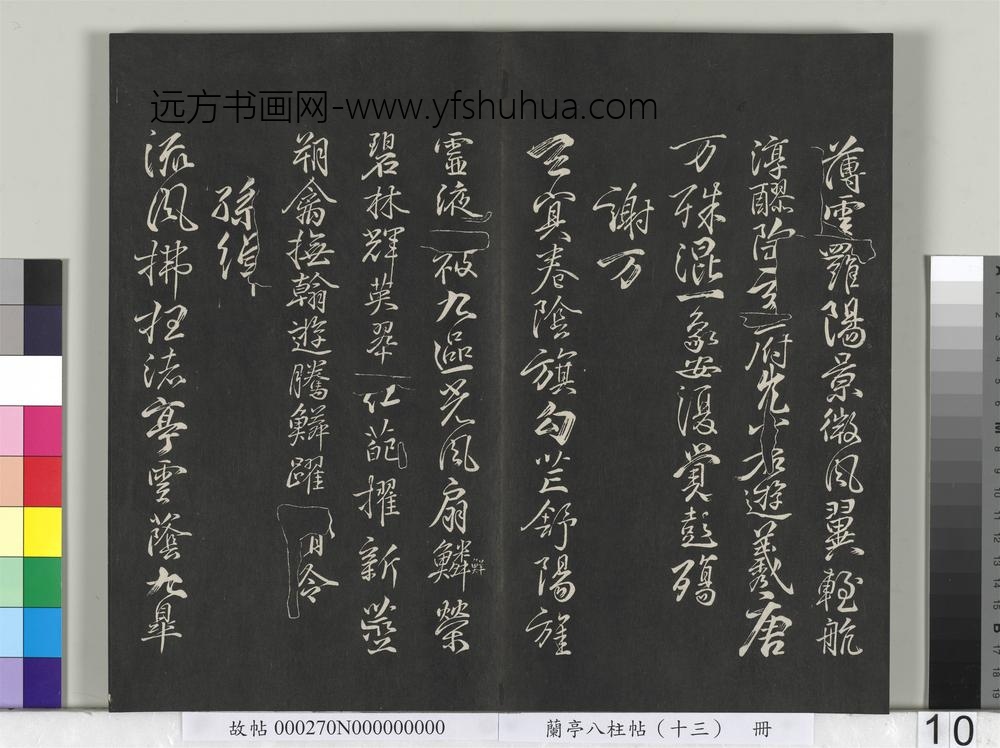 远方书画网-www.yfshuhua.com
薄雲羅陽景微風翼輕航
淳醪陶玄府兀若遊羲唐
万殊混一象安復覺彭殤
謝万
玄冥卷陰旗勾芒舒陽旌
靈液被九區光風扇鱗榮
碧林輝英翠紅葩擢新莖
翔禽撫翰遊騰鱗躍清泠
孫綽
流風拂枉渚亭雲蔭九皋
故帖 000270N000000000
蘭亭八柱帖（十三） 冊
10